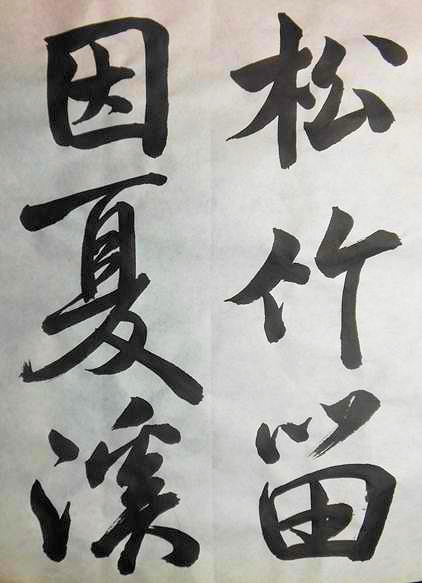 松竹留
因夏溪